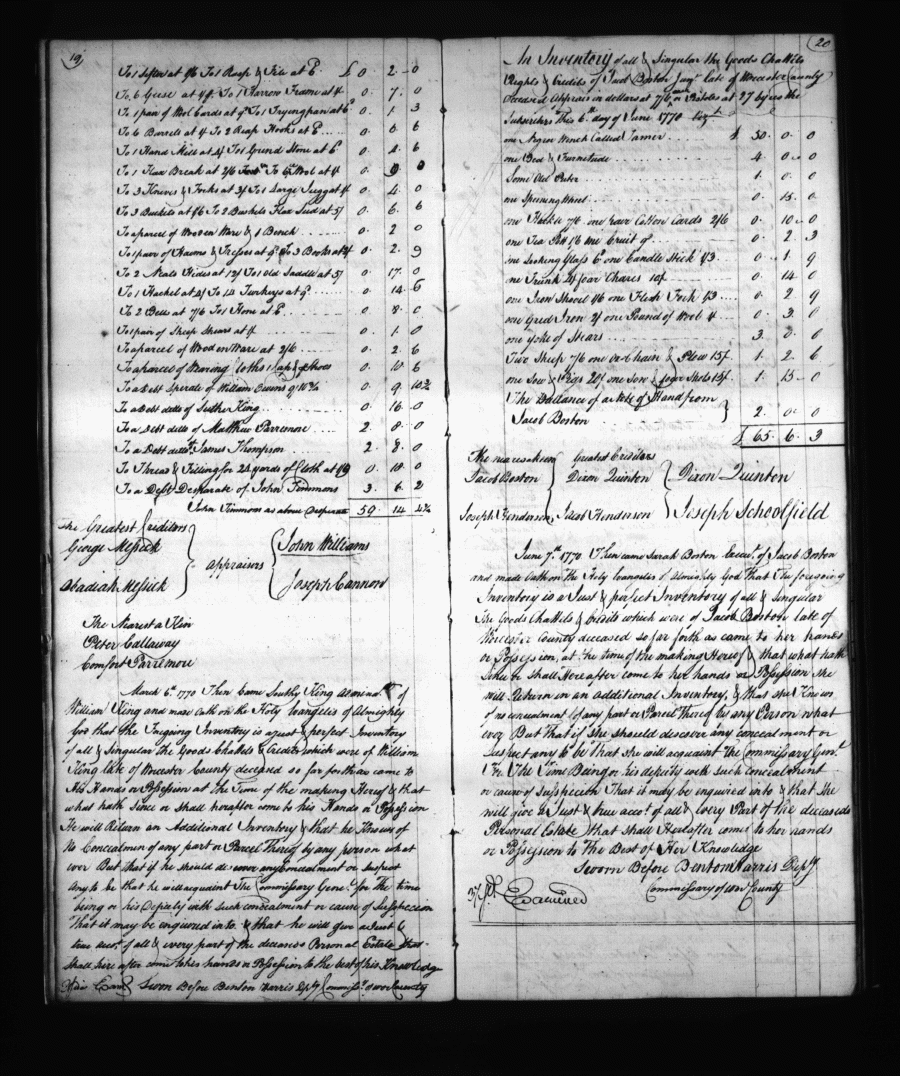 19
To 1 Sifter at 1/6 To 1 Rasp & File at 6d £ 0. 2. 0
To 6 Geese at 4/ To 1 Harrow Frame at 0. 7. 0
To 1 pair of Wool Cards at 9d To 1 Frying pan at 6d 0. 1. 3
To 6 Barrels at To 2 Reap Hooks at 0. 6
To 1 Hand Mill at 4/ To 1 Grind Stone at 6d 0. 4. 6
To 1 Flax Break at 2/6 To Wool at 0. 9. 0
To 3 Knives & Forks at 3/ To 1 Large Juggat 1/ 0. 4. 0
To 3 Buckets at 1/6 To 2 Bushels Flax Seed at 5/ 0. 6. 6
To a parcel of Wooden Ware & 1 Bench 0. 2. 0
To 1 pair of Haems & Traces at To 3 Books at 2/ 0. 2. 9
To 2 Neats Hides at 12/ To 1 old Saddle at 5/ 0. 17. 0
To 1 Hackel at To 14 Turkeys at 0. 14. 6
To 2 Bells at 7/6 To 1 Hone at 6 0. 8. 0
To 1 pair of Sheep Shears at 1/ 0. 1. 0
To a parcel of Wooden Ware at 2/6 0. 2. 6
To a parcel of Wearing Cloths 1 Cap & Shoes 0. 10. 6
To a Debt Sperate of William Ewins 9/10½ 0. 9. 10½
To a Debt ditto of Luther King 0. 16. 0
To a Debt ditto of Matthew Parremore 2. 8. 0
To a Debt ditto James Thompson 2. 8. 0
To Thread & Filling for 24 yards of Cloth at 1/9 0. 18. 0
To a Debt Desparate of John Timmons 3. 6. 2
John Timmons as above Desperate 59. 14. 4¾
The Greatest Creditors
George Messick
Obadiah Messick
Appraisors
John Williams
Joseph Cannon
The Nearest a Kin
Peter Callaway
Comfort Parremore
March 6th 1770 Then Came Southy King Adminr. of
William King and made Oath on the Holy Evangelis of Almighty
God that the Foregoing Inventory is a Just & perfect Inventory
of all & Singular the Goods Chattels & Credits which were of William
King late of Worcester County deceased so far forth as came to
His Hands or Possession at the Time of the making Hereof & that
what hath Since or shall hereafter come to his Hands or Possession
He will Return an Additional Inventory & that he Knows of
No Concealment of any part or Parcel Thereof by any person what
ever But that if he should discover any Concealment or Suspect
Any to be that he will acquaint The Commissary Genl. for the time
being or his Deputy with Such concealment or cause of Suspecion
That it may be enquired into & that he will give a Just &
true acct. of all & every part of the deceaseds Personal Estate that
Shall hereafter come to his hands or Possession to the best of his Knowledge
Sworn Before Benton Harris Depty Commissy. of Wor County
20
An Inventory of all & Singular the Goods Chattels
Rights & Credits of Jacob Boston Junr. late of Worcester County
deceased Appraisd in dollars at 7/6 & Pistoles at 27 by us the
Subscribers This 6th day of June 1770 Vizt
one Negro Wench Called Tamer £ 50. 0. 0
one Bed & Furnitude 4. 0. 0
Some Old Puter 1. 0. 0
one Spinning Wheel 0. 15. 0
one Hackle 7/6 one pair Cotton Cards 2/6 0. 10. 0
one Tea Pott 1/6 one Cruit 9d 0. 2. 3
one Looking Glass 6 one Candle Stick 1/3 0. 1. 9
one Trunk 4/ four Chares 10/ 0. 14. 0
one Iron Shovel 1/6 one Flesh Fork 1/3 0. 2. 9
one Gred Iron 2/ one Pound of Wool 0. 3. 0
one yoke of Stears 3. 0. 0
Two Sheep 7/6 one ox Chaire & Plow 15/ 1. 2. 6
one Sow & Pigs 20/ one Sow & four Shots 15/ 1. 15. 0
The Ballance of a Note of Hand from
Jacob Boston 2. 0. 0
£ 65. 6. 3
The nearest akin
Jacob Boston
Joseph Henderson
Greatest Creditors
Dixon Quinton
Jacob Henderson
Dixon Quinton
Joseph Schoolfield
June 7th. 1770. Then came Sarah Boston Execut. of Jacob Boston
and made Oath on The Holy Evangelis of Almighty God That The foregoing
Inventory is a Just & perfect Inventory of all & Singular
The Goods Chattels & Credits which were of Jacob Boston late of
Worcester County deceased so far forth as came to her hands
or Possession, at the time of the making Hereof & that what hath
Since or shall Hereafter come to her hands or Possession She
will Return in an Additional Inventory, & that she Knows
of no concealment of any part or Parcel Thereof by any Person what
ever But That if she should discover any concealment or
Suspect any to be That she will acquaint The Commissary Genl.
For The Time Being or his deputy with such concealment
or cause of Suspecion That it may be enquired into & that she
will give a Just & true acct. of all & every Part of the deceaseds
Personal Estate that shall Hereafter come to her hands
or Possession to The Best of Her Knowledge
Sworn Before Benton Harris Depty.
Commissary of Wor County
Examined